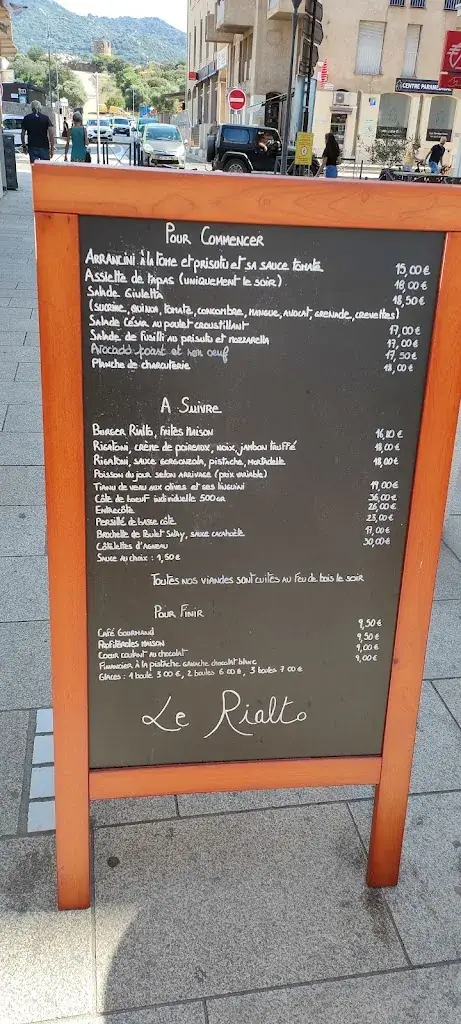 CENTRE PARAMÉ
Pour Commencer
Arrancini à la tome et prisutu et sa sauce tomate 15,00 €
Assiette de tapas (uniquement le soir) 18,00 €
Salade Giuletta 18,50 €
(sucrine, quinoa, tomate, concombre, mangue, avocat, grenade, crevettes)
Salade César au poulet croustillant 17,00 €
Salade de fusilli au prisutu et mozzarella 17,00 €
Avocado toast et son oeuf 17,50 €
Planche de charcuterie 18,00 €
A Suivre
Burger Rialto, frites maison
Rigatoni, crème de poireaux, noix, jambon truffé 18,00 €
Rigatoni, sauce gorgonzola, pistache, mortadelle 18,00 €
Poisson du jour selon arrivage (prix variable)
Tianu de veau aux olives et ses linguini 19,00 €
Côte de boeuf individuelle 500gr 36,00 €
Entrecôte 26,00 €
Persillé de basse côte 23,00 €
Brochette de Poulet Satay, sauce cacahuète 17,00 €
Côtelettes d'agneau 30,00 €
Sauce au choix : 1,50 €
Toutes nos viandes sont cuites au feu de bois le soir
Pour Finir
Café Gourmand 9,50 €
Profiteroles maison 9,50 €
Coeur coulant au chocolat 9,00 €
Financier à la pistache ganache chocolat blanc 9,00 €
Glaces : 1 boule 3.00 €, 2 boules 6.00 €, 3 boules 7.00 €
Le Rialto